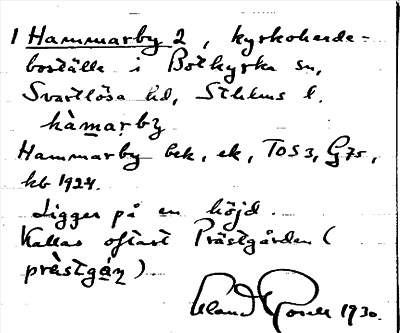 1 Hammarby 2, kyrkoherde-
boställe i Botkyrka sn,
Svartlösa hd, Sthlms l.
hàmarby
Hammarby bek, ek, TOS3, G75,
hb 1924.
Ligger på en höjd.
Kallas oftast Prästgården (
prästgán).
Roser 1930.